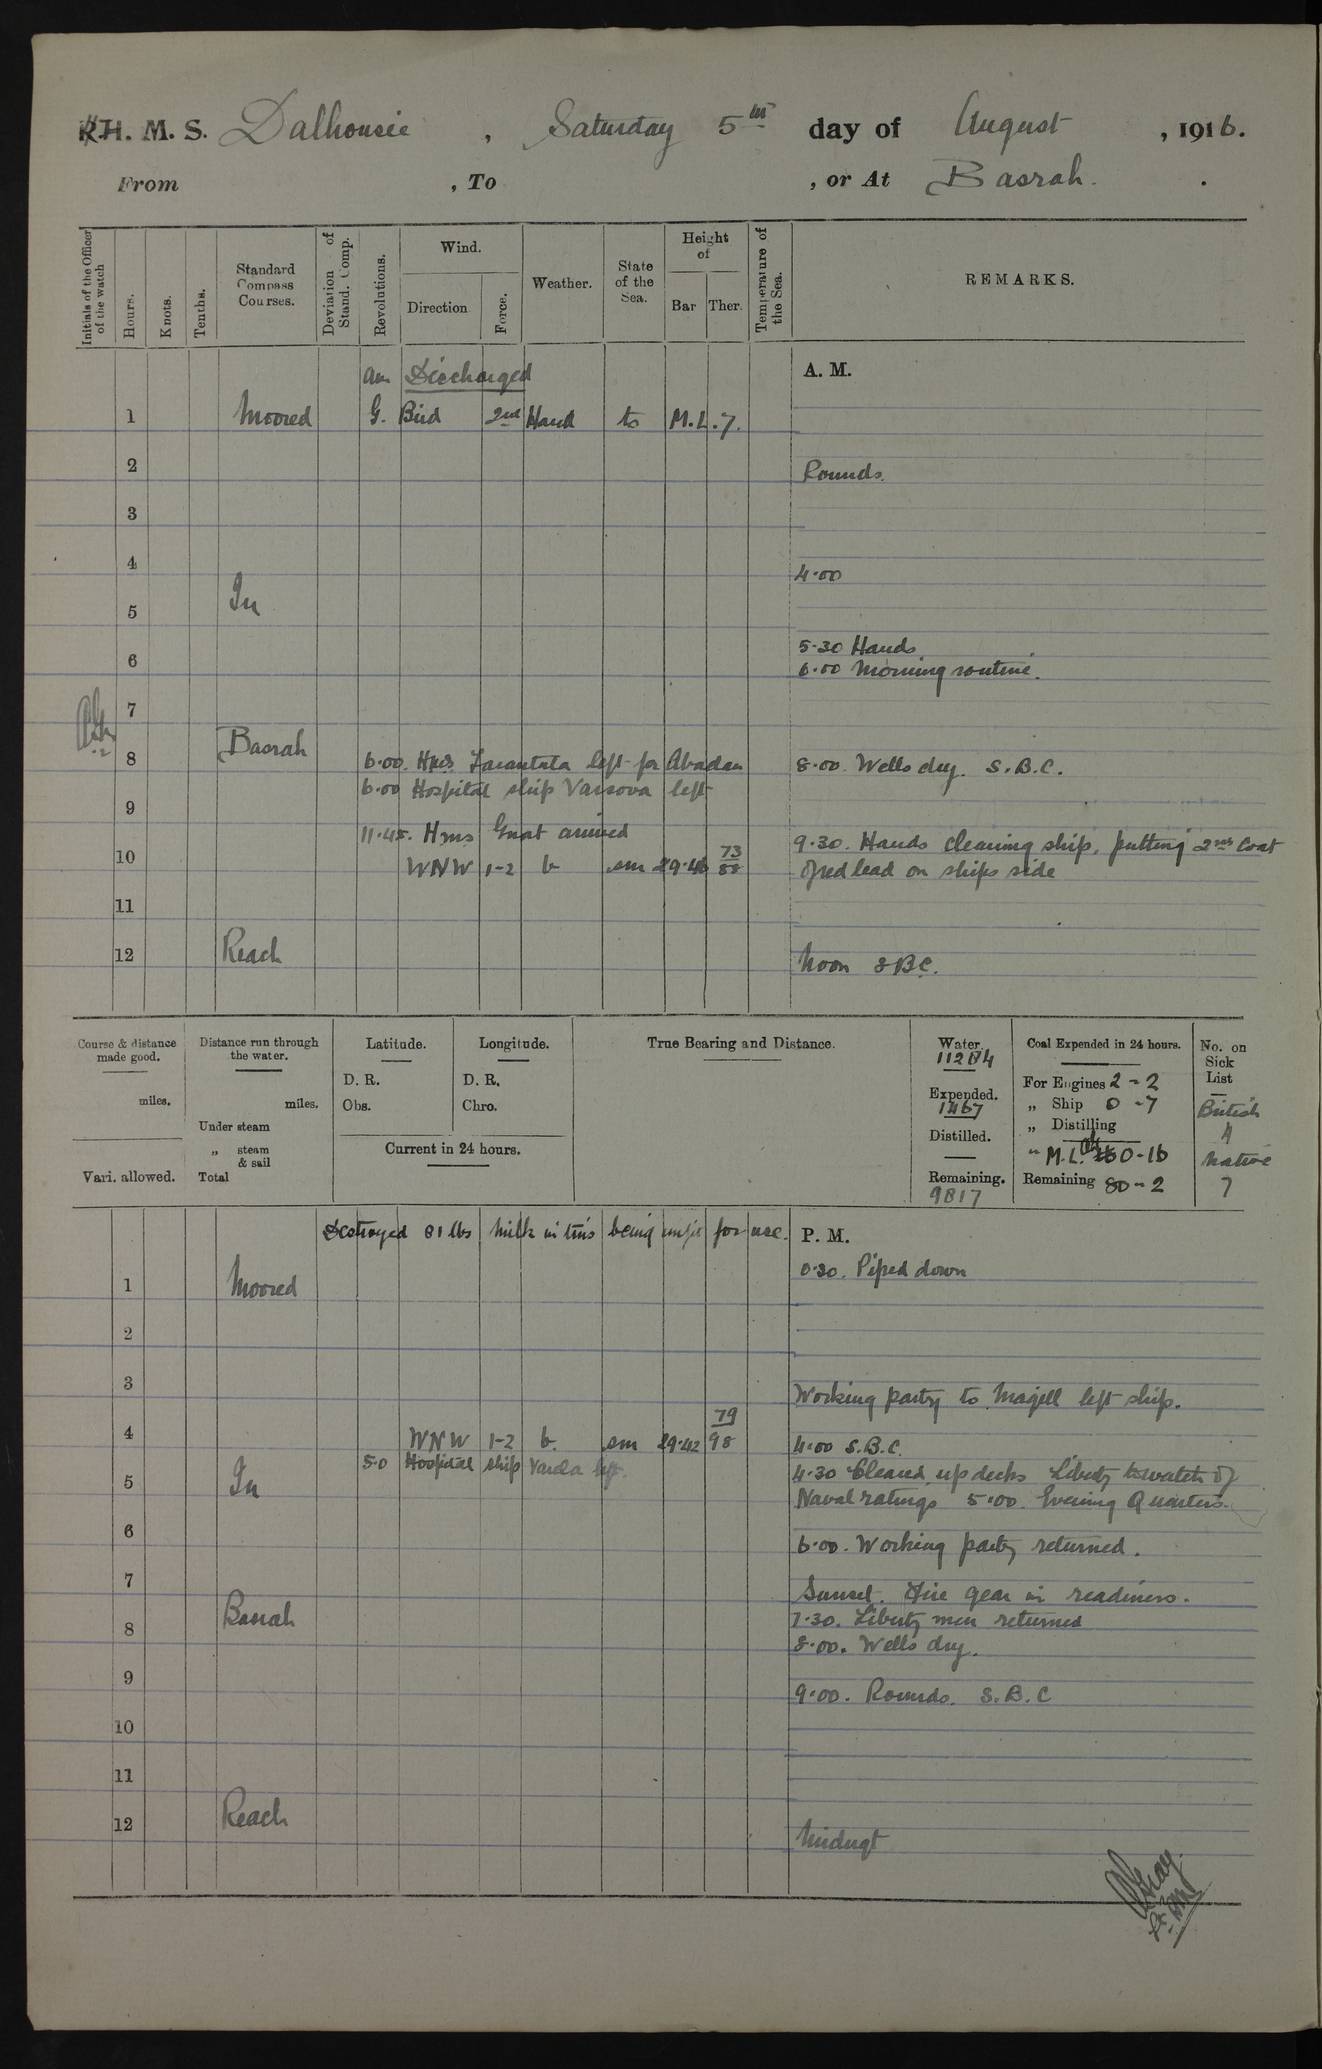 H. M. S. Dalhousie, Saturday 5th day of August, 1916.
From , To , or At Basrah.
Initials of the Officer of the watch
Hours.
Knots.
Tenths.
Standard Compass Courses.
Deviation of Stand. Comp.
Revolutions.
Wind.
Direction
Force.
Weather.
State of the Sea.
Height of
Bar Ther.
Temperature of the Sea.
REMARKS.
am Discharged
A. M.
1 Moored G. Bird 2nd Hand to M.L.7.
2 Rounds.
3
4 4.00
In
5
5.30 Hands
6 6.00 Morning routine.
7
Basrah
8 6.00. HMS Tarantula left for Abadan 8.00. Wells dry. S.B.C.
6.00 Hospital ship Varsova left
9
11.45. Hms Gnat arrived 9.30. Hands cleaning ship, putting 2nd Coat
10 WNW 1-2 b sm 29.46 73/88 of red lead on ships side
11
12 Reach Noon SBC.
Course & distance made good.
miles.
Vari. allowed.
Distance run through the water.
miles.
Under steam
„ steam & sail
Total
Latitude.
D. R.
Obs.
Longitude.
D. R.
Chro.
Current in 24 hours.
True Bearing and Distance.
Water.
11284
Expended.
1467
Distilled.
Remaining.
9817
Coal Expended in 24 hours.
For Engines 2-2
„ Ship 0-7
„ Distilling
" M.L. 0-16
Remaining 80-2
No. on Sick List
British
4
Native
7
Destroyed 81 lbs Milk in tins being unfit for use. P. M.
0.30. Piped down
1 Moored
2
3
Working party to Magill left ship.
79
4 WNW 1-2 b. sm 29.42 98 4.00 S.B.C.
5.0 Hospital ship Varela left. 4.30 Cleared up decks Liberty to watch of
5 In Naval ratings 5.00. Evening Quarters.
6 6.00. Working party returned.
7 Sunset. Fire gear in readiness.
Basrah 7.30. Liberty men returned
8 8.00. Wells dry.
9 9.00. Rounds. S.B.C
10
11
12 Reach Midngt